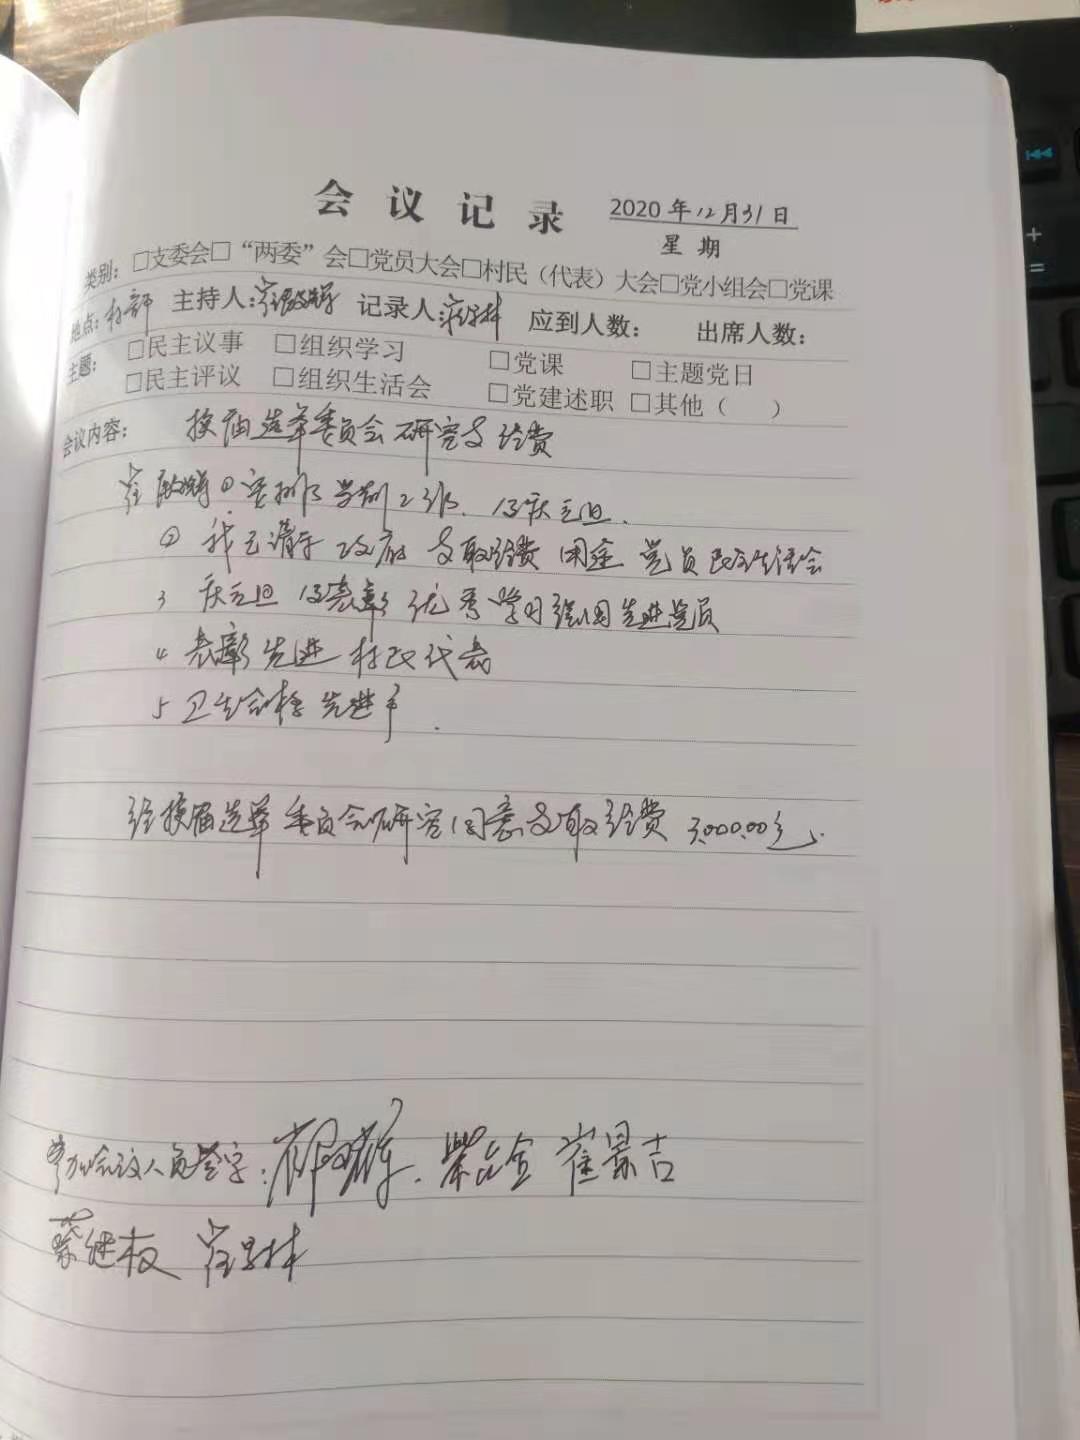 会议记录 2020年12月31日
星期
类别：□支委会□“两委”会□党员大会□村民（代表）大会□党小组会□党课
地点：村部 主持人： 记录人： 应到人数： 出席人数：
主题： □民主议事 □组织学习 □党课 □主题党日
□民主评议 □组织生活会 □党建述职 □其他（ ）
会议内容： 换届选举委员会研究支经费
① 安排 庆元旦.
② 我已请示政府支取经费 用途 党员民主生活会
3 庆元旦 表彰优秀学习强国先进党员
4 表彰先进村民代表
5 卫生 先进户.
经换届选举委员会研究同意支取经费 3,000.00元.
参加会议人员签字： 崔景吉
蔡继权